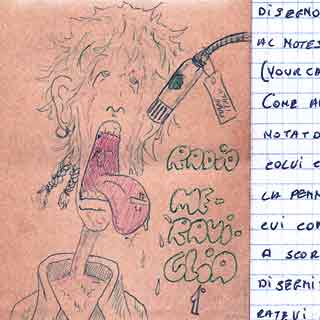 RADIO
ME-
RAVI-
GLIA
DISEGNO
AL NOTES
(YOUR CA
COME A
NOTATO
COLUI C
LA PENN
CUI CO
A SCOR
DISEGNI
RATEVI